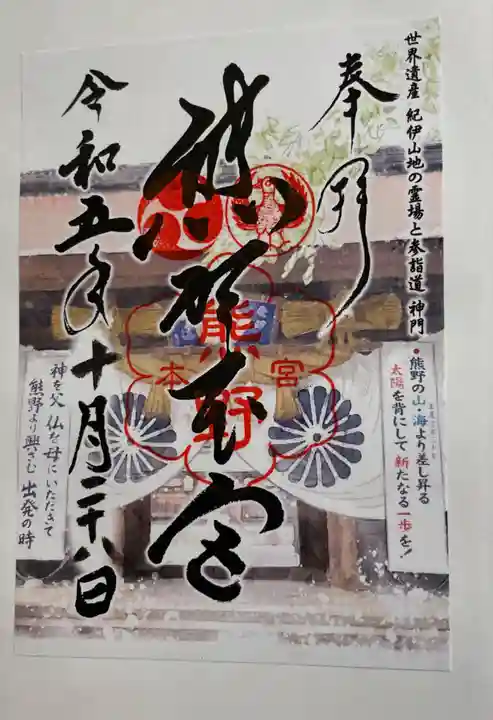 世界遺産 紀伊山地の霊場と参詣道 神門
奉拝
熊野の山・海より差し昇る
太陽を背にして新たなる一歩を!
熊野本宮
熊野
本宮
令和五年十月二十八日
神を父 仏を母にいただきて
熊野より興さむ 出発の時